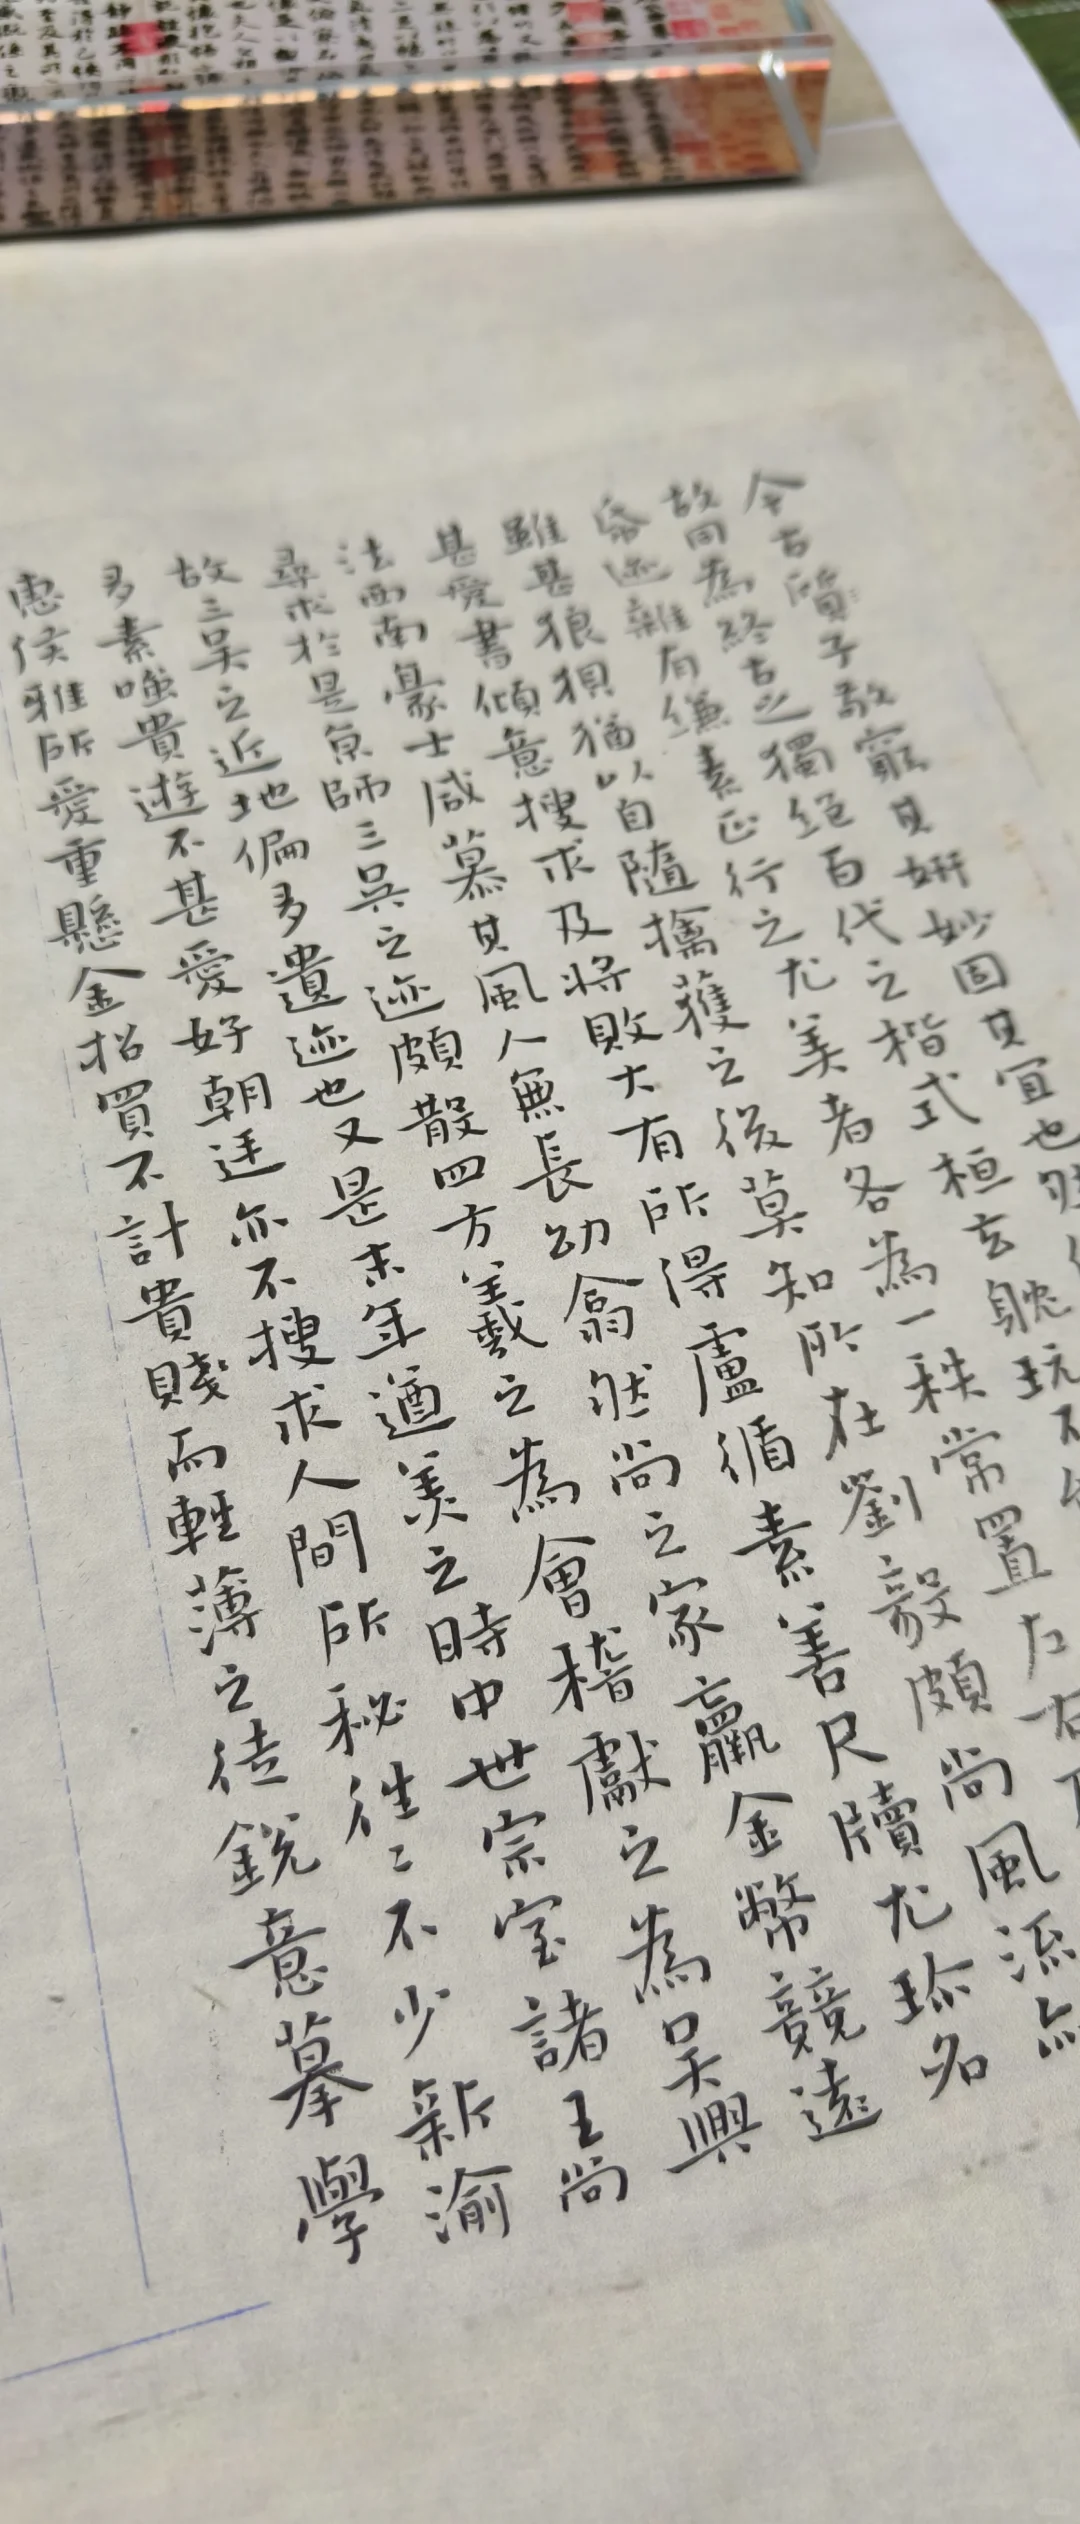 今古質子敬窮其妍妙固其宜也然
故同為終古之獨絕百代之楷式桓玄耽玩不
帋迹雜有縑素正行之尤美者各為一秩常置左右及
雖甚狼狽猶以自隨擒獲之後莫知所在劉毅頗尚風流亦
甚愛書傾意搜求及將敗大有所得盧循素善尺牘尤珍名
法西南豪士咸慕其風人無長幼翕然尚之家贏金幣競遠
尋求於是京師三吳之迹頗散四方羲之為會稽獻之為吳興
故三吳之近地偏多遺迹也又是末年遒美之時中世宗室諸王尚
多素嗤貴遊不甚愛好朝廷亦不搜求人間所秘往〻不少新渝
惠侯雅所愛重懸金招買不計貴賤而輕薄之徒銳意摹學